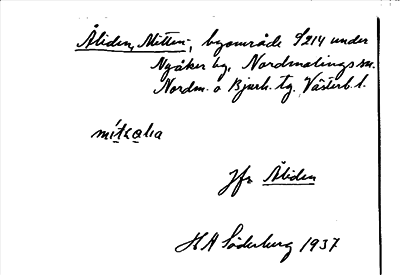 Åliden, Mitten-, byområde 5/214 under
Nyåker by, Nordmalings sn.
Nordm. o Bjurh. tg. Västerb. l.
mítalia
Jfr Åliden
H A Söderberg 1937